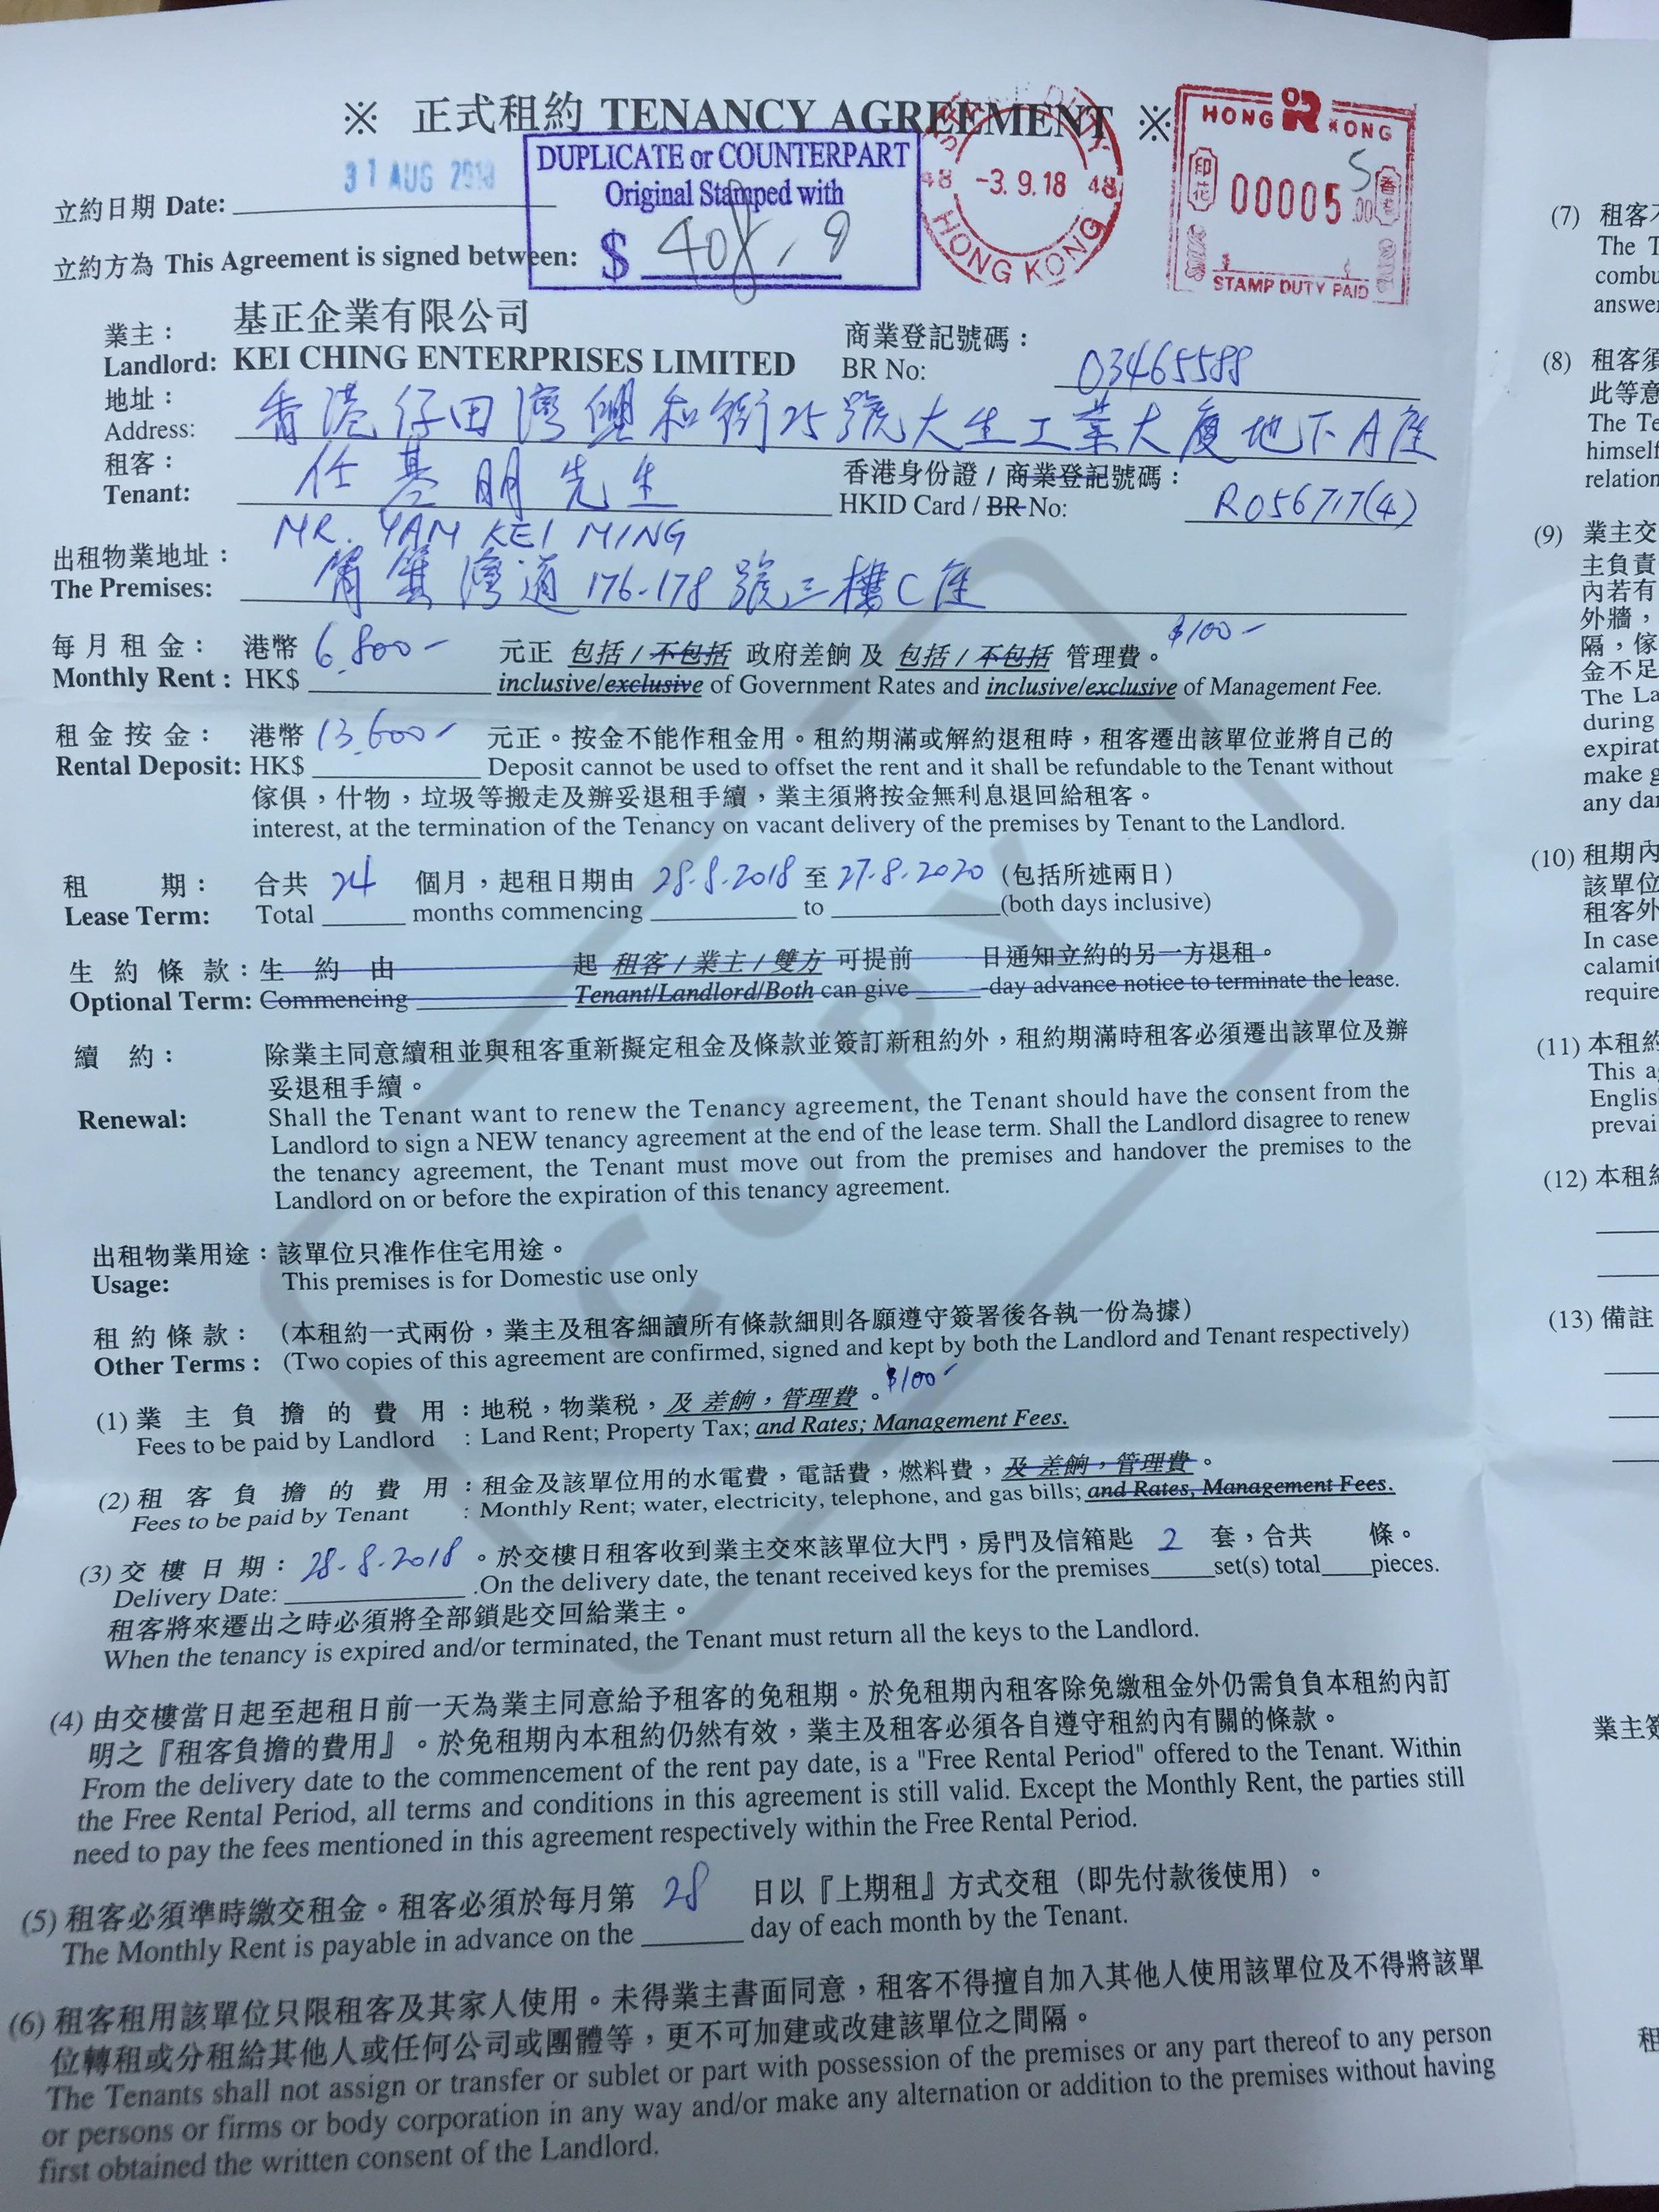 ※ 正式租約 TENANCY AGREEMENT ※
立約日期 Date: 31 AUG 2018
DUPLICATE or COUNTERPART
Original Stamped with
$ 408.9
STAMP DUTY
48 -3.9.18 48
HONG KONG
HONG KONG
印花 00005.00 香港
S
STAMP DUTY PAID
立約方為 This Agreement is signed between:
業主： 基正企業有限公司 商業登記號碼：
Landlord: KEI CHING ENTERPRISES LIMITED BR No: 03465588
地址：
Address: 香港仔田灣興和街25號大生工業大廈地下A座
租客： 任基明先生 香港身份證 / 商業登記號碼：
Tenant: HKID Card / BR No: R056717(4)
MR. YAM KEI MING
出租物業地址：
The Premises: 筲箕灣道176-178號三樓C座
每月租金： 港幣 6,800- 元正 包括 / 不包括 政府差餉 及 包括 / 不包括 管理費。 $100-
Monthly Rent : HK$ inclusive/exclusive of Government Rates and inclusive/exclusive of Management Fee.
租金按金： 港幣 13,600- 元正。按金不能作租金用。租約期滿或解約退租時，租客遷出該單位並將自己的
Rental Deposit: HK$ Deposit cannot be used to offset the rent and it shall be refundable to the Tenant without
傢俱，什物，垃圾等搬走及辦妥退租手續，業主須將按金無利息退回給租客。
interest, at the termination of the Tenancy on vacant delivery of the premises by Tenant to the Landlord.
租 期： 合共 24 個月，起租日期由 28.8.2018 至 27.8.2020 (包括所述兩日)
Lease Term: Total months commencing to (both days inclusive)
生約條款：生 約 由 起 租客 / 業主 / 雙方 可提前 日通知立約的另一方退租。
Optional Term: Commencing Tenant/Landlord/Both can give -day advance notice to terminate the lease.
續 約： 除業主同意續租並與租客重新擬定租金及條款並簽訂新租約外，租約期滿時租客必須遷出該單位及辦
妥退租手續。
Renewal: Shall the Tenant want to renew the Tenancy agreement, the Tenant should have the consent from the
Landlord to sign a NEW tenancy agreement at the end of the lease term. Shall the Landlord disagree to renew
the tenancy agreement, the Tenant must move out from the premises and handover the premises to the
Landlord on or before the expiration of this tenancy agreement.
出租物業用途：該單位只准作住宅用途。
Usage: This premises is for Domestic use only
租約條款： (本租約一式兩份，業主及租客細讀所有條款細則各願遵守簽署後各執一份為據)
Other Terms : (Two copies of this agreement are confirmed, signed and kept by both the Landlord and Tenant respectively)
(1) 業主負擔的費用：地税，物業税，及 差餉，管理費。 $100-
Fees to be paid by Landlord : Land Rent; Property Tax; and Rates; Management Fees.
(2) 租客負擔的費用：租金及該單位用的水電費，電話費，燃料費，及 差餉，管理費。
Fees to be paid by Tenant : Monthly Rent; water, electricity, telephone, and gas bills; and Rates, Management Fees.
(3) 交樓日期： 28.8.2018 。於交樓日租客收到業主交來該單位大門，房門及信箱匙 2 套，合共 條。
Delivery Date: .On the delivery date, the tenant received keys for the premises set(s) total pieces.
租客將來遷出之時必須將全部鎖匙交回給業主。
When the tenancy is expired and/or terminated, the Tenant must return all the keys to the Landlord.
(4) 由交樓當日起至起租日前一天為業主同意給予租客的免租期。於免租期內租客除免繳租金外仍需負負本租約內訂
明之『租客負擔的費用』。於免租期內本租約仍然有效，業主及租客必須各自遵守租約內有關的條款。
From the delivery date to the commencement of the rent pay date, is a "Free Rental Period" offered to the Tenant. Within
the Free Rental Period, all terms and conditions in this agreement is still valid. Except the Monthly Rent, the parties still
need to pay the fees mentioned in this agreement respectively within the Free Rental Period.
(5) 租客必須準時繳交租金。租客必須於每月第 28 日以『上期租』方式交租（即先付款後使用）。
The Monthly Rent is payable in advance on the day of each month by the Tenant.
(6) 租客租用該單位只限租客及其家人使用。未得業主書面同意，租客不得擅自加入其他人使用該單位及不得將該單
位轉租或分租給其他人或任何公司或團體等，更不可加建或改建該單位之間隔。
The Tenants shall not assign or transfer or sublet or part with possession of the premises or any part thereof to any person
or persons or firms or body corporation in any way and/or make any alternation or addition to the premises without having
first obtained the written consent of the Landlord.
COPY
(7) 租客不
The T
combu
answer
(8) 租客須
此等意
The Te
himself
relation
(9) 業主交
主負責
內若有
外牆，
隔，傢
金不足
The La
during
expirat
make g
any dar
(10) 租期內
該單位
租客外
In case
calamit
require
(11) 本租約
This a
Englis
prevai
(12) 本租約
(13) 備註
業主簽
租